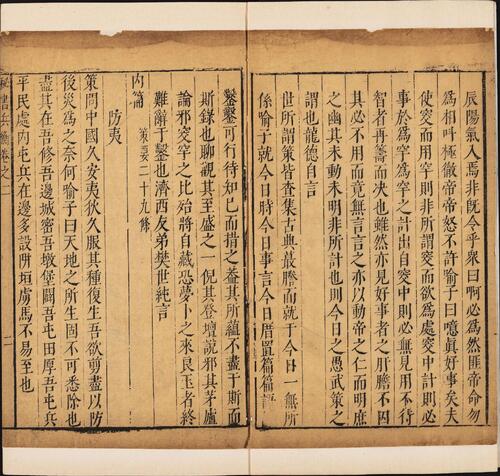 辰陽氣人焉非既令乎眾曰啊必為然匪帝命勿
為相呼極徹帝帝怒不許喻子曰噫真好事矣夫
使突而用罕則非所謂突而欲為處突中計則必
事於為罕為罕之計出自突中則必無見用不待
智者再籌而決也雖然亦見好事者之肝膽不囚
其必不用而竟無言言之突也以動帝之仁而明庶
之幽其未動未明非所計也則今日之愚武策之
謂也龍德自言
世所謂策皆查集古典最謄而就于今日一無所
係喻于就今日時今日事言今日厝置篇篇詳
鑿鑿可行待知已而措之葢其所蘊不盡于斯而
斯錄也聊觀其至盛之一倪其登壇說邪其茅廬
論邪突罕之比殆將自藏恐夢卜之來良玉者終
難辭于鑿也濟西友弟樊世純言
內篇 策畧二十九條
防夷
策問中國久安夷狄久服其種復生吾欲剪盡以防
後災為之奈何喻子曰天地之所生固不可悉除也
盡其在吾修吾邊城密吾墩堡闢吾屯田厚吾屯兵
平民處內屯兵在邊多設阱垣虜馬不易至也
書兵衡卷之二
二